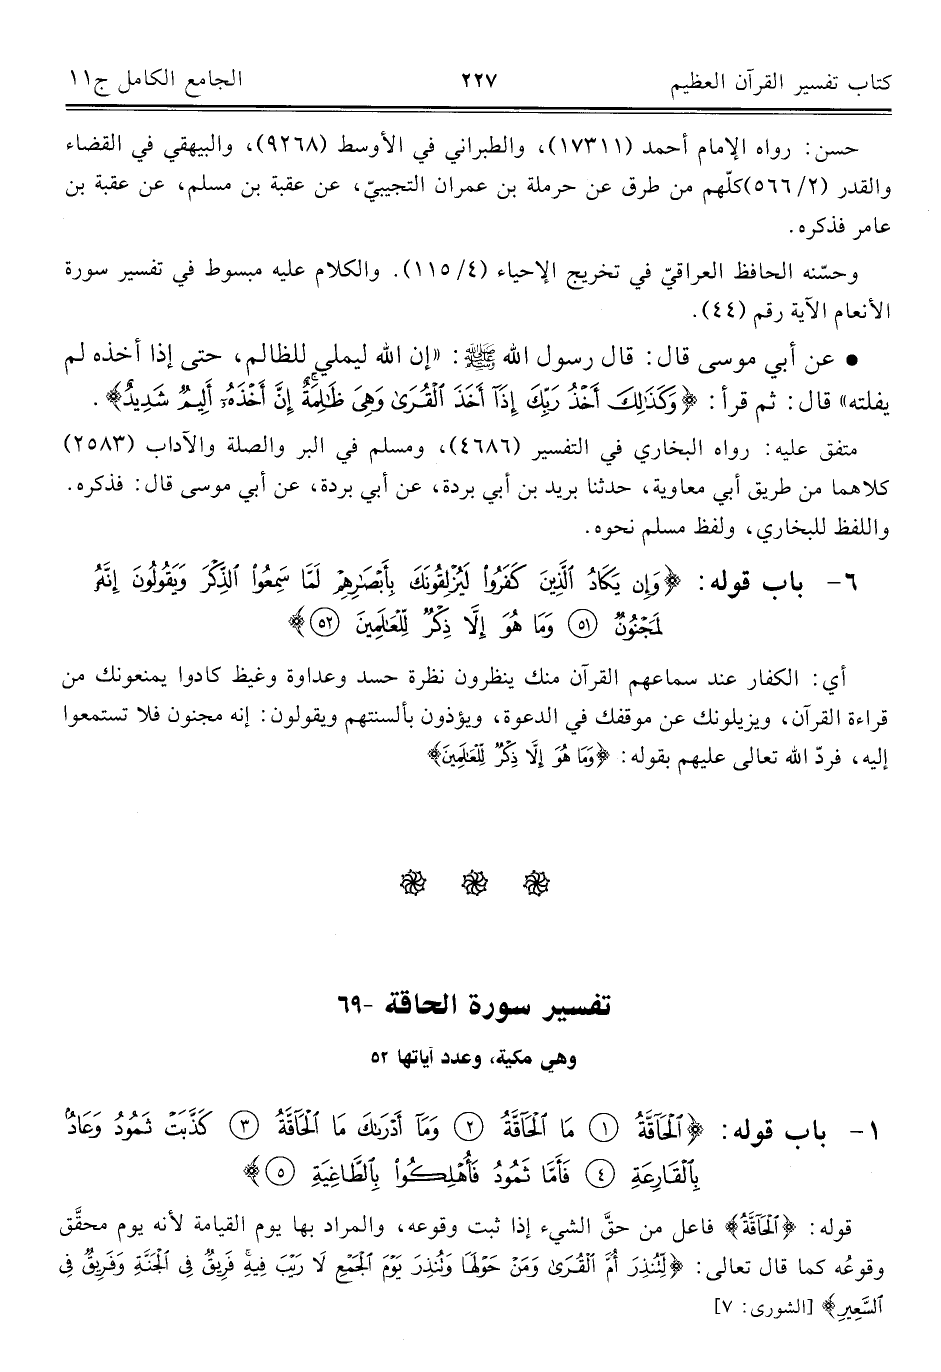 كتاب تفسير القرآن العظيم ٢٢٧ الجامع الكامل ج١١
حسن: رواه الإمام أحمد (١٧٣١١)، والطبراني في الأوسط (٩٢٦٨)، والبيهقي في القضاء
والقدر (٥٦٦/٢)كلّهم من طرق عن حرملة بن عمران التجيبيّ، عن عقبة بن مسلم، عن عقبة بن
عامر فذكره.
وحسّنه الحافظ العراقيّ في تخريج الإحياء (١١٥/٤). والكلام عليه مبسوط في تفسير سورة
الأنعام الآية رقم (٤٤).
• عن أبي موسى قال: قال رسول الله ﷺ: «إن الله ليملي للظالم، حتى إذا أخذه لم
يفلته» قال: ثم قرأ: ﴿وَكَذَٰلِكَ أَخْذُ رَبِّكَ إِذَآ أَخَذَ ٱلْقُرَىٰ وَهِىَ ظَٰلِمَةٌۚ إِنَّ أَخْذَهُۥٓ أَلِيمٌ شَدِيدٌ﴾ .
متفق عليه: رواه البخاري في التفسير (٤٦٨٦)، ومسلم في البر والصلة والآداب (٢٥٨٣)
كلاهما من طريق أبي معاوية، حدثنا بريد بن أبي بردة، عن أبي بردة، عن أبي موسى قال: فذكره.
واللفظ للبخاري، ولفظ مسلم نحوه.
٦- باب قوله: ﴿وَإِن يَكَادُ ٱلَّذِينَ كَفَرُوا۟ لَيُزْلِقُونَكَ بِأَبْصَٰرِهِمْ لَمَّا سَمِعُوا۟ ٱلذِّكْرَ وَيَقُولُونَ إِنَّهُۥ
لَمَجْنُونٌ (٥١) وَمَا هُوَ إِلَّا ذِكْرٌ لِّلْعَٰلَمِينَ (٥٢)﴾
أي: الكفار عند سماعهم القرآن منك ينظرون نظرة حسد وعداوة وغيظ كادوا يمنعونك من
قراءة القرآن، ويزيلونك عن موقفك في الدعوة، ويؤذون بألسنتهم ويقولون: إنه مجنون فلا تستمعوا
إليه، فردّ الله تعالى عليهم بقوله: ﴿وَمَا هُوَ إِلَّا ذِكْرٌ لِّلْعَٰلَمِينَ﴾
تفسير سورة الحاقة -٦٩
وهي مكية، وعدد آياتها ٥٢
١- باب قوله: ﴿ٱلْحَآقَّةُ (١) مَا ٱلْحَآقَّةُ (٢) وَمَآ أَدْرَىٰكَ مَا ٱلْحَآقَّةُ (٣) كَذَّبَتْ ثَمُودُ وَعَادٌۢ
بِٱلْقَارِعَةِ (٤) فَأَمَّا ثَمُودُ فَأُهْلِكُوا۟ بِٱلطَّاغِيَةِ (٥)﴾
قوله: ﴿ٱلْحَآقَّةُ﴾ فاعل من حقَّ الشيء إذا ثبت وقوعه، والمراد بها يوم القيامة لأنه يوم محقَّق
وقوعُه كما قال تعالى: ﴿لِّتُنذِرَ أُمَّ ٱلْقُرَىٰ وَمَنْ حَوْلَهَا وَتُنذِرَ يَوْمَ ٱلْجَمْعِ لَا رَيْبَ فِيهِۚ فَرِيقٌ فِى ٱلْجَنَّةِ وَفَرِيقٌ فِى
ٱلسَّعِيرِ﴾ [الشورى: ٧]